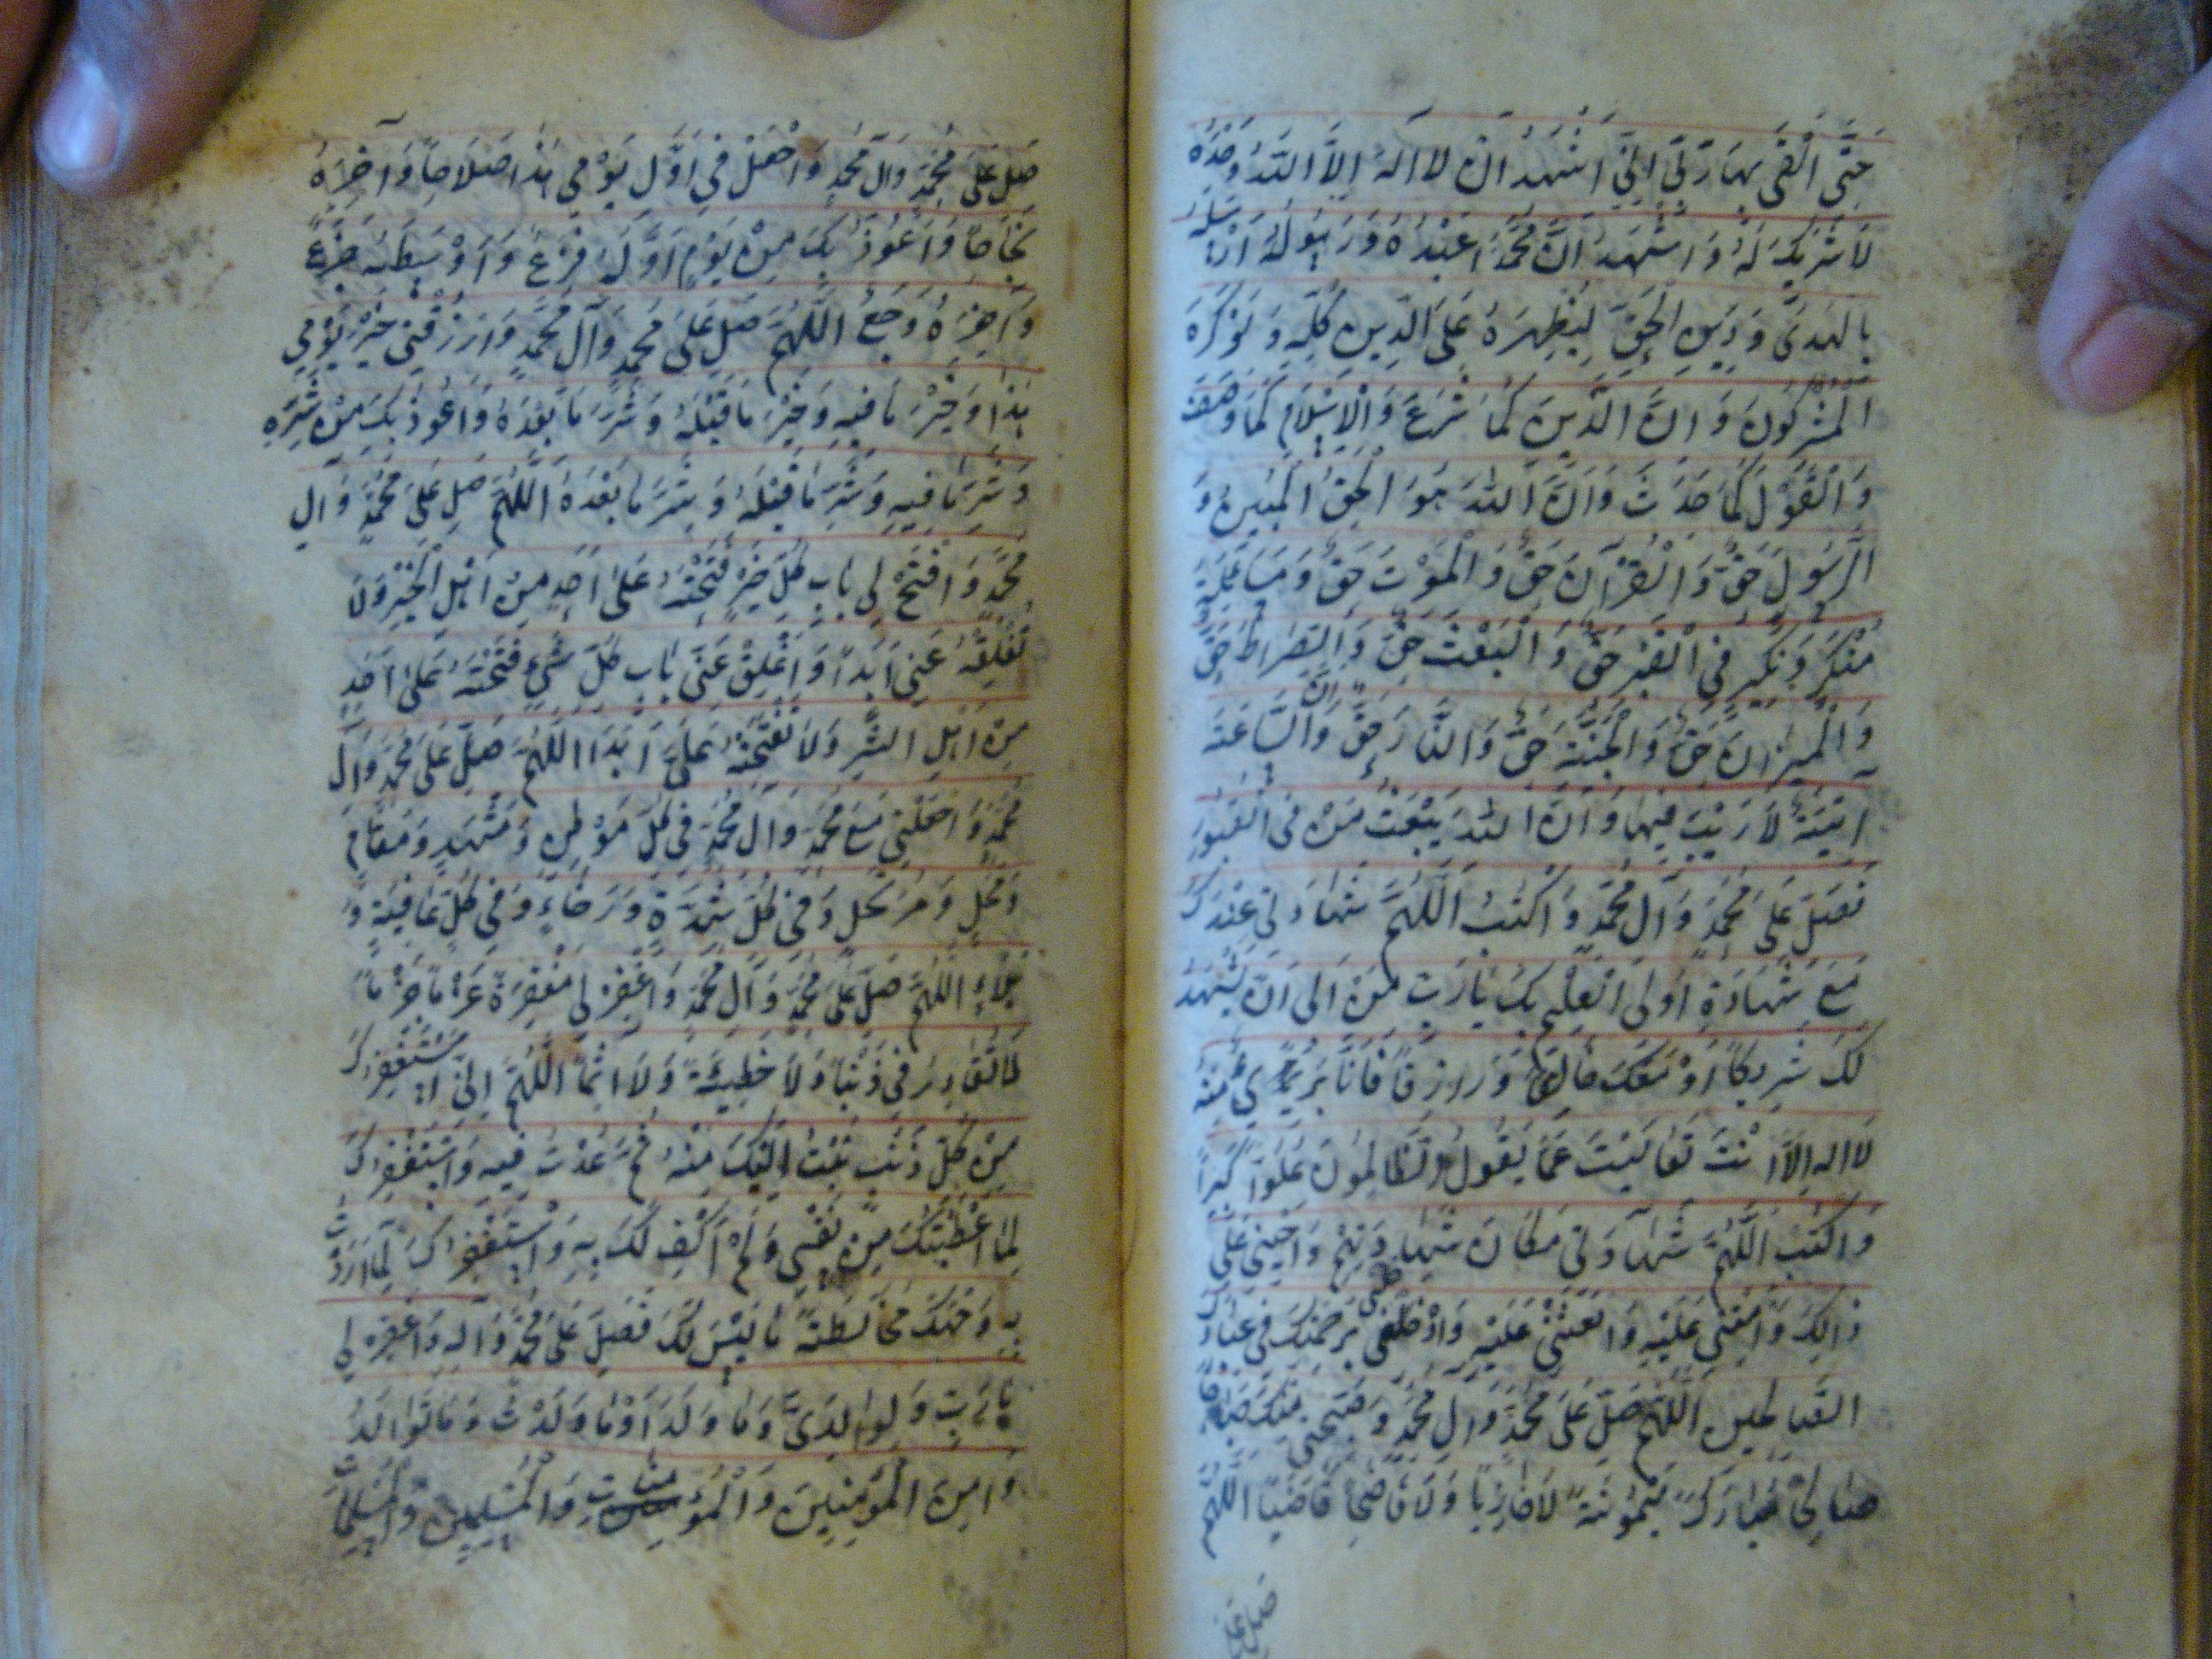 حَتَّى أَلْقَى بِهَا رَبِّي إِنِّي أَشْهَدُ أَنْ لَا إِلٰهَ إِلَّا اللهُ وَحْدَهُ
لَا شَرِيكَ لَهُ وَأَشْهَدُ أَنَّ مُحَمَّدًا عَبْدُهُ وَرَسُولُهُ أَرْسَلَهُ
بِالْهُدَى وَدِينِ الْحَقِّ لِيُظْهِرَهُ عَلَى الدِّينِ كُلِّهِ وَلَوْ كَرِهَ
الْمُشْرِكُونَ وَأَنَّ الدِّينَ كَمَا شَرَعَ وَالْإِسْلَامَ كَمَا وَصَفَ
وَالْقَوْلَ كَمَا حَدَّثَ وَأَنَّ اللهَ هُوَ الْحَقُّ الْمُبِينُ وَ
الرَّسُولَ حَقٌّ وَالْقُرْآنَ حَقٌّ وَالْمَوْتَ حَقٌّ وَمُسَاءَلَةَ
مُنْكَرٍ وَنَكِيرٍ فِي الْقَبْرِ حَقٌّ وَالْبَعْثَ حَقٌّ وَالصِّرَاطَ حَقٌّ
وَالْمِيزَانَ حَقٌّ وَالْجَنَّةَ حَقٌّ وَالنَّارَ حَقٌّ وَأَنَّ السَّاعَةَ
آتِيَةٌ لَا رَيْبَ فِيهَا وَأَنَّ اللهَ يَبْعَثُ مَنْ فِي الْقُبُورِ
فَصَلِّ عَلَى مُحَمَّدٍ وَآلِ مُحَمَّدٍ وَاكْتُبِ اللَّهُمَّ شَهَادَتِي عِنْدَكَ
مَعَ شَهَادَةِ أُولِي الْعِلْمِ بِكَ يَا رَبِّ وَمَنْ أَبَى أَنْ يَشْهَدَ
لَكَ شَرِيكًا أَوْ مَعَكَ خَالِقًا وَرَازِقًا فَأَنَا بَرِيءٌ مِنْهُ
لَا إِلٰهَ إِلَّا أَنْتَ تَعَالَيْتَ عَمَّا يَقُولُ الظَّالِمُونَ عُلُوًّا كَبِيرًا
وَاكْتُبِ اللَّهُمَّ شَهَادَتِي مَكَانَ شَهَادَتِهِمْ وَأَحْيِنِي عَلَى
ذَالِكَ وَأَمِتْنِي عَلَيْهِ وَابْعَثْنِي عَلَيْهِ وَأَدْخِلْنِي بِرَحْمَتِكَ فِي عِبَادِكَ
الصَّالِحِينَ اللَّهُمَّ صَلِّ عَلَى مُحَمَّدٍ وَآلِ مُحَمَّدٍ وَصَبِّحْنِي مِنْكَ صَبَاحًا
صَالِحًا مُبَارَكًا مَيْمُونًا لَا خَازِيًا وَلَا فَاضِحًا اللَّهُمَّ
صل على
صَلِّ عَلَى مُحَمَّدٍ وَآلِ مُحَمَّدٍ وَاجْعَلْ فِي أَوَّلِ يَوْمِي هٰذَا صَلَاحًا وَآخِرِهُ
نَجَاحًا وَأَعُوذُ بِكَ مِنْ يَوْمٍ أَوَّلُهُ فَزَعٌ وَأَوْسَطُهُ جَزَعٌ
وَآخِرُهُ وَجَعٌ اللَّهُمَّ صَلِّ عَلَى مُحَمَّدٍ وَآلِ مُحَمَّدٍ وَارْزُقْنِي خَيْرَ يَوْمِي
هٰذَا وَخَيْرَ مَا فِيهِ وَخَيْرَ مَا قَبْلَهُ وَشَرَّ مَا بَعْدَهُ وَأَعُوذُ بِكَ مِنْ شَرِّهِ
وَشَرِّ مَا فِيهِ وَشَرِّ مَا قَبْلَهُ وَشَرِّ مَا بَعْدَهُ اللَّهُمَّ صَلِّ عَلَى مُحَمَّدٍ وَآلِ
مُحَمَّدٍ وَافْتَحْ لِي بَابَ كُلِّ خَيْرٍ فَتَحْتَهُ عَلَى أَحَدٍ مِنْ أَهْلِ الْخَيْرِ وَلَا
تُغْلِقْهُ عَنِّي أَبَدًا وَأَغْلِقْ عَنِّي بَابَ كُلِّ شَيْءٍ فَتَحْتَهُ عَلَى أَحَدٍ
مِنْ أَهْلِ الشَّرِّ وَلَا تَفْتَحْهُ عَلَيَّ أَبَدًا اللَّهُمَّ صَلِّ عَلَى مُحَمَّدٍ وَآلِ
مُحَمَّدٍ وَاجْعَلْنِي مَعَ مُحَمَّدٍ وَآلِ مُحَمَّدٍ فِي كُلِّ مَوْطِنٍ وَمَشْهَدٍ وَمَقَامٍ
وَمَحَلٍّ وَمُرْتَحَلٍ وَفِي كُلِّ شِدَّةٍ وَرَخَاءٍ وَفِي كُلِّ عَافِيَةٍ وَ
بَلَاءٍ اللَّهُمَّ صَلِّ عَلَى مُحَمَّدٍ وَآلِ مُحَمَّدٍ وَاغْفِرْ لِي مَغْفِرَةً عَزْمًا جَزْمًا
لَا تُغَادِرُ لِي ذَنْبًا وَلَا خَطِيئَةً وَلَا إِثْمًا اللَّهُمَّ إِنِّي أَسْتَغْفِرُكَ
مِنْ كُلِّ ذَنْبٍ تُبْتُ إِلَيْكَ مِنْهُ ثُمَّ عُدْتُ فِيهِ وَأَسْتَغْفِرُكَ
لِمَا أَعْطَيْتُكَ مِنْ نَفْسِي وَلَمْ أَفِ لَكَ بِهِ وَأَسْتَغْفِرُكَ لِمَا أَرَدْتُ
بِهِ وَجْهَكَ فَخَالَطَهُ مَا لَيْسَ لَكَ فَصَلِّ عَلَى مُحَمَّدٍ وَآلِهِ وَاغْفِرْ لِي
يَا رَبِّ وَلِوَالِدَيَّ وَمَا وَلَدَا وَمَا وَلَدْتُ وَمَا تَوَالَدُوا
مِنَ الْمُؤْمِنِينَ وَالْمُؤْمِنَاتِ وَالْمُسْلِمِينَ وَالْمُسْلِمَاتِ